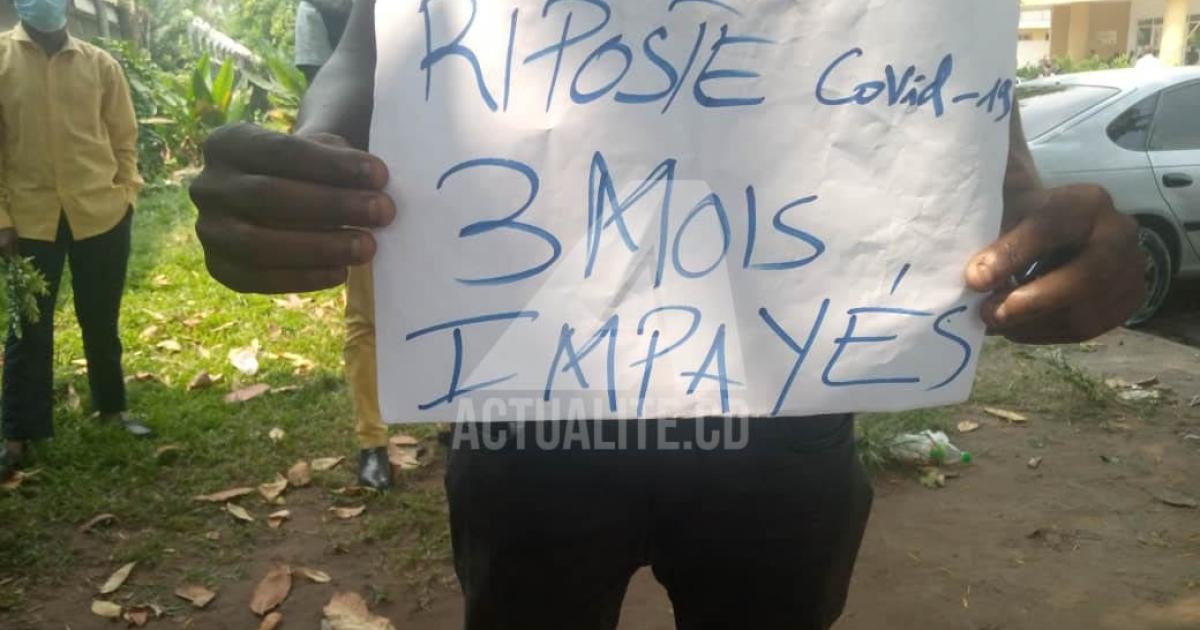 RIPOSTE Covid-19
3 MOIS
IMPAYÉS
ACTUALITE.CD